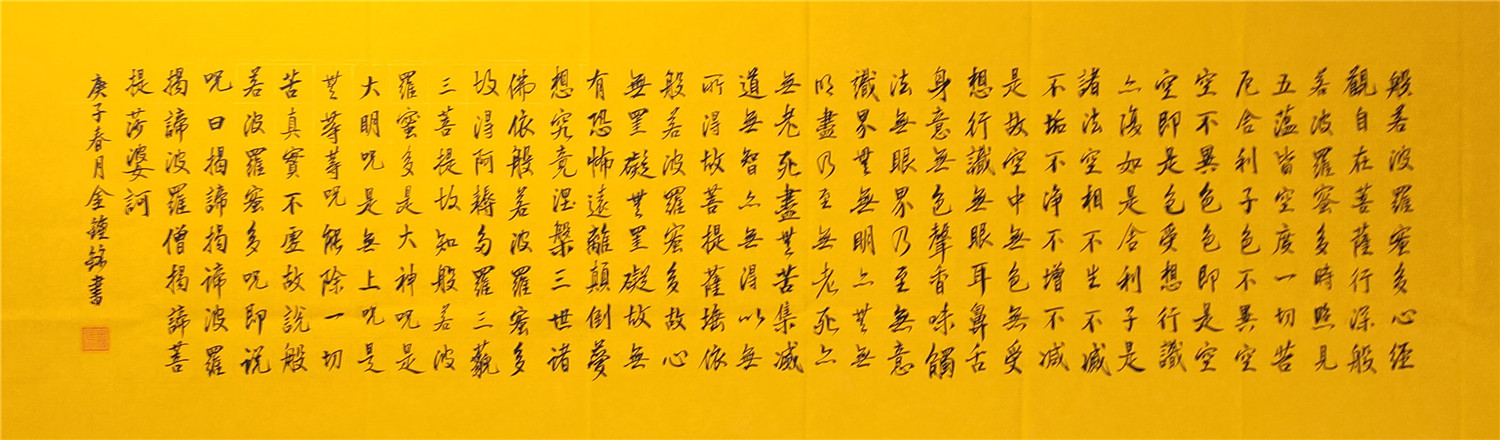 般若波羅蜜多心經
觀自在菩薩行深般
若波羅蜜多時照見
五蘊皆空度一切苦
厄舍利子色不異空
空不異色色即是空
空即是色受想行識
亦復如是舍利子是
諸法空相不生不滅
不垢不净不增不减
是故空中無色無受
想行識無眼耳鼻舌
身意無色聲香味觸
法無眼界乃至無意
識界無無明亦無無
明盡乃至無老死亦
無老死盡無苦集滅
道無智亦無得以無
所得故菩提薩埵依
般若波羅蜜多故心
無罣礙無罣礙故無
有恐怖遠離顛倒夢
想究竟涅槃三世诸
佛依般若波羅蜜多
故得阿耨多羅三藐
三菩提故知般若波
羅蜜多是大神咒是
大明咒是無上咒是
無等等咒能除一切
苦真實不虛故說般
若波羅蜜多咒即说
咒曰揭諦揭谛波羅
揭諦波羅僧揭諦菩
提莎婆訶
庚子春月金鍾銘書